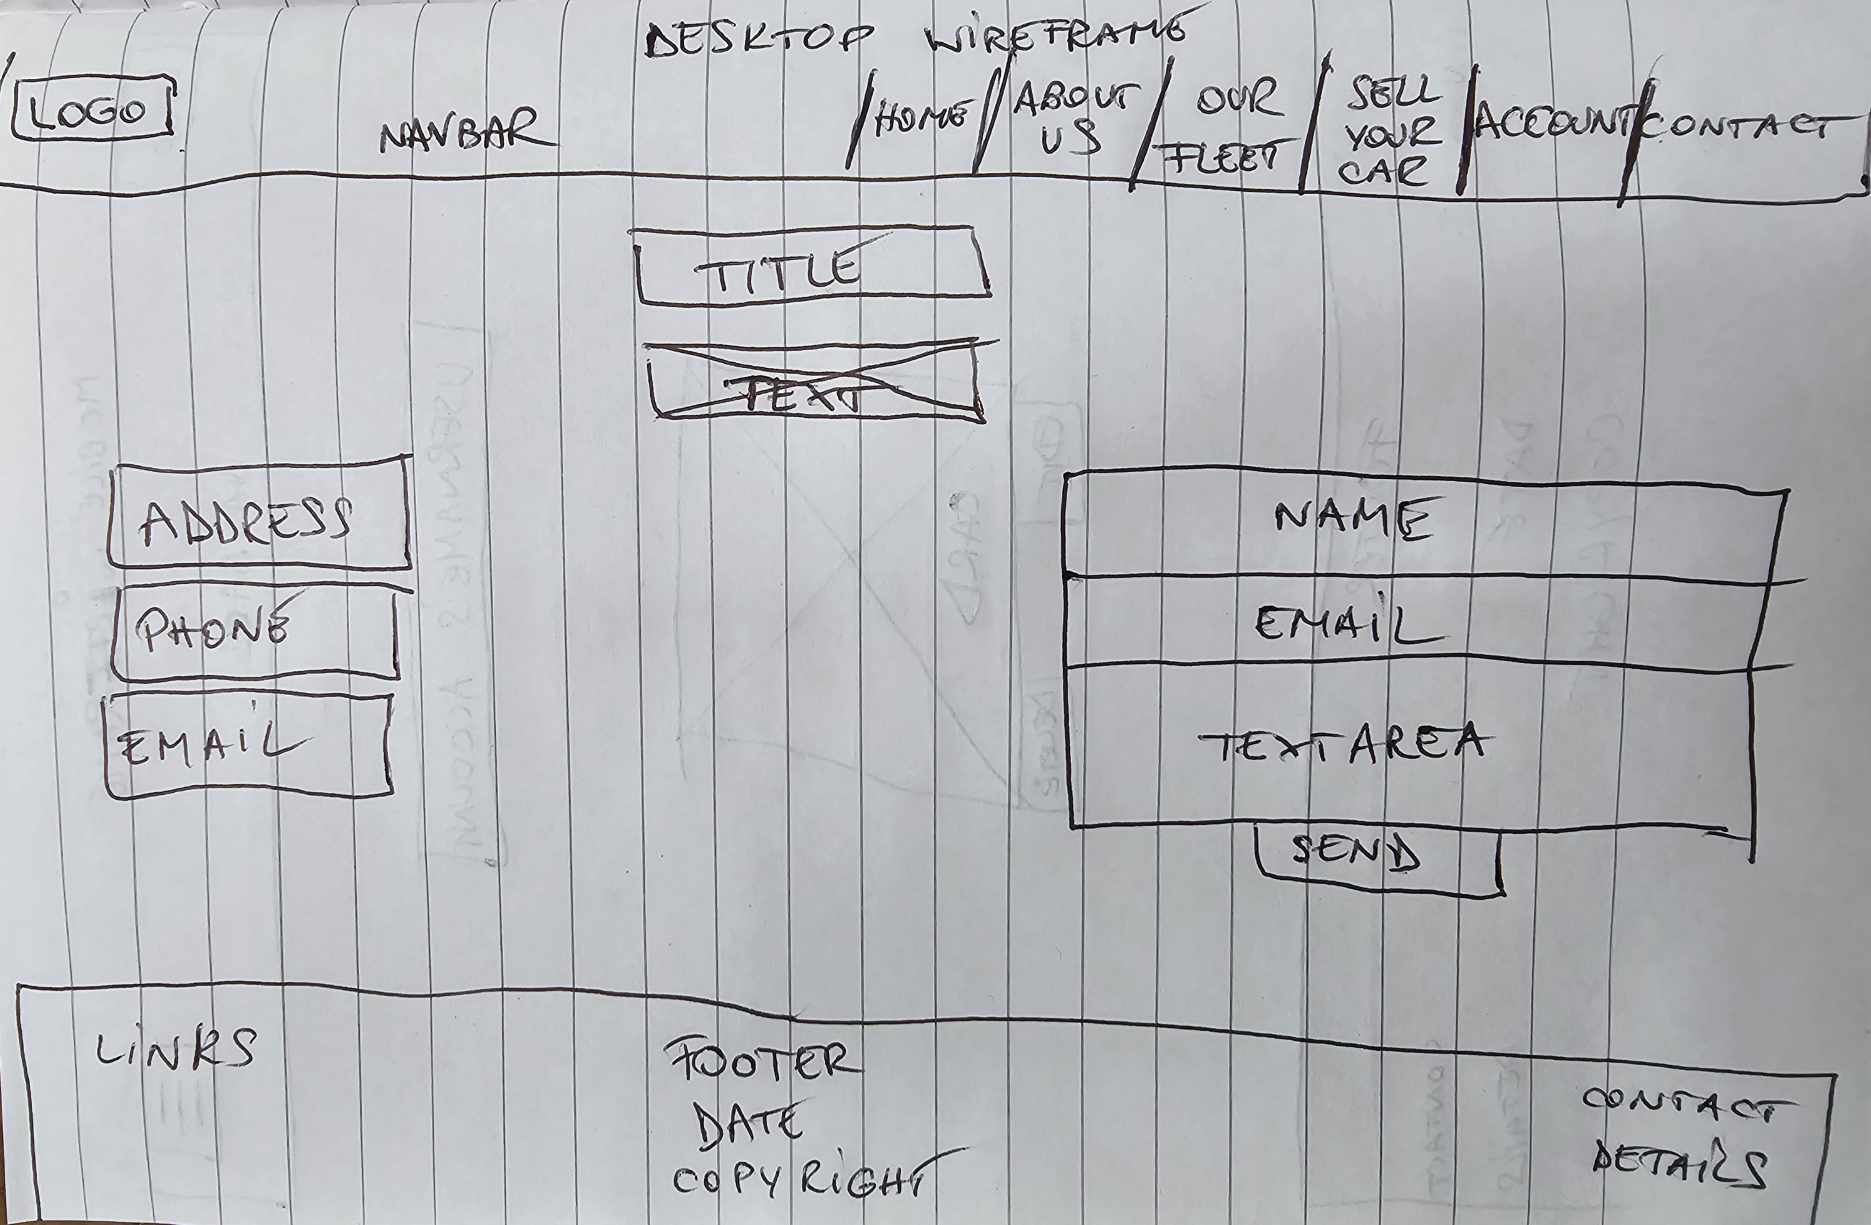 DESKTOP WIREFRAME
LOGO
NAVBAR
HOME
ABOUT
US
OUR
FLEET
SELL
YOUR
CAR
ACCOUNT
CONTACT
TITLE
TEXT
ADDRESS
PHONE
EMAIL
NAME
EMAIL
TEXTAREA
SEND
LINKS
FOOTER
DATE
COPYRIGHT
CONTACT
DETAILS